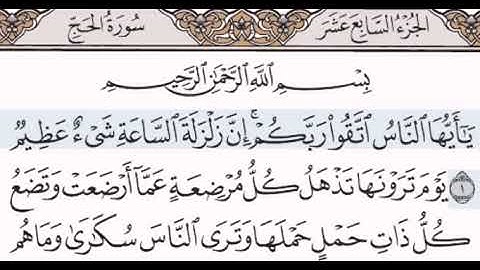 الجُزْءُ السَّابِعَ عَشَرَ
سُورَةُ الحَجِّ
بِسْمِ اللَّهِ الرَّحْمَٰنِ الرَّحِيمِ
يَٰٓأَيُّهَا ٱلنَّاسُ ٱتَّقُوا۟ رَبَّكُمْ ۚ إِنَّ زَلْزَلَةَ ٱلسَّاعَةِ شَىْءٌ عَظِيمٌ
١ يَوْمَ تَرَوْنَهَا تَذْهَلُ كُلُّ مُرْضِعَةٍ عَمَّآ أَرْضَعَتْ وَتَضَعُ
كُلُّ ذَاتِ حَمْلٍ حَمْلَهَا وَتَرَى ٱلنَّاسَ سُكَٰرَىٰ وَمَا هُم